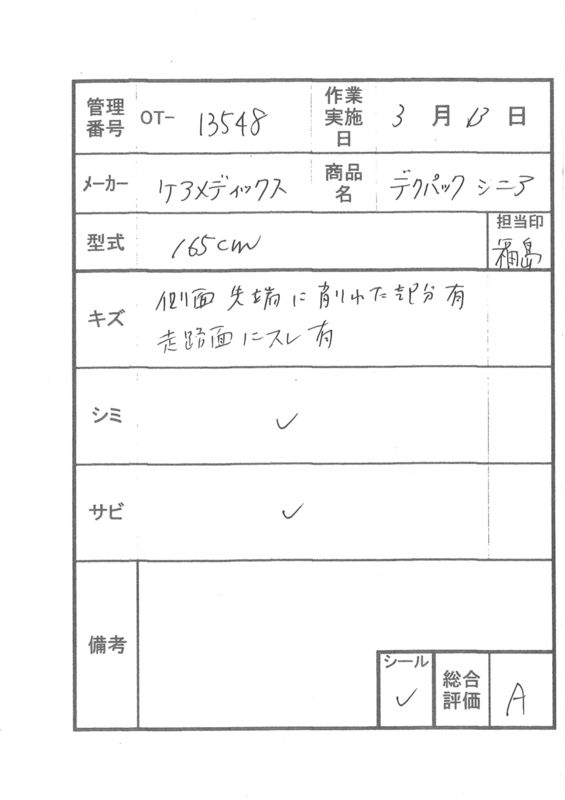 管理番号 OT- 13548 作業実施日 3 月 13 日
メーカー ケアメディックス 商品名 デクパック シニア
型式 165cm 担当印 福島
キズ 側面 先端 に 削れた 部分 有
走路面にスレ 有
シミ ✓
サビ ✓
備考
シール ✓ 総合評価 A